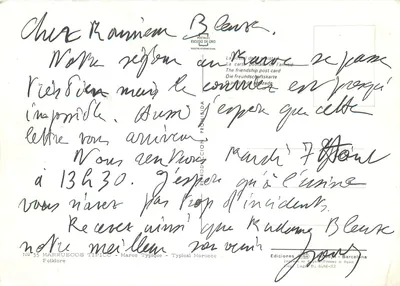 Cher Monsieur Bleuse.
Notre séjour au Maroc se passe
très bien mais le courrier est presqu'
impossible. Aussi j'espère que cette
lettre vous arrivera
Nous rentrons Mardi 7
à 13h30. J'espère qu'à l'usine
vous n'avez pas trop d'incidents.
Recevez ainsi que Madame Bleuse
notre meilleur souvenir
The friendship post card
Die Freundschaftskarte
35 MARRUECOS TIPICO - Maroc Typique - Typical Morocco
Folklore
Ediciones
Barcelona